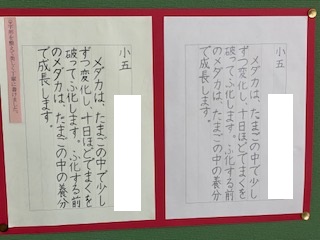 小五
メダカは、たまごの中で少し
ずつ変化し、十日ほどでまくを
破ってふ化します。ふ化する前
のメダカは、たまごの中の養分
で成長します。
小五
メダカは、たまごの中で少し
ずつ変化し、十日ほどでまくを
破ってふ化します。ふ化する前
のメダカは、たまごの中の養分
で成長します。